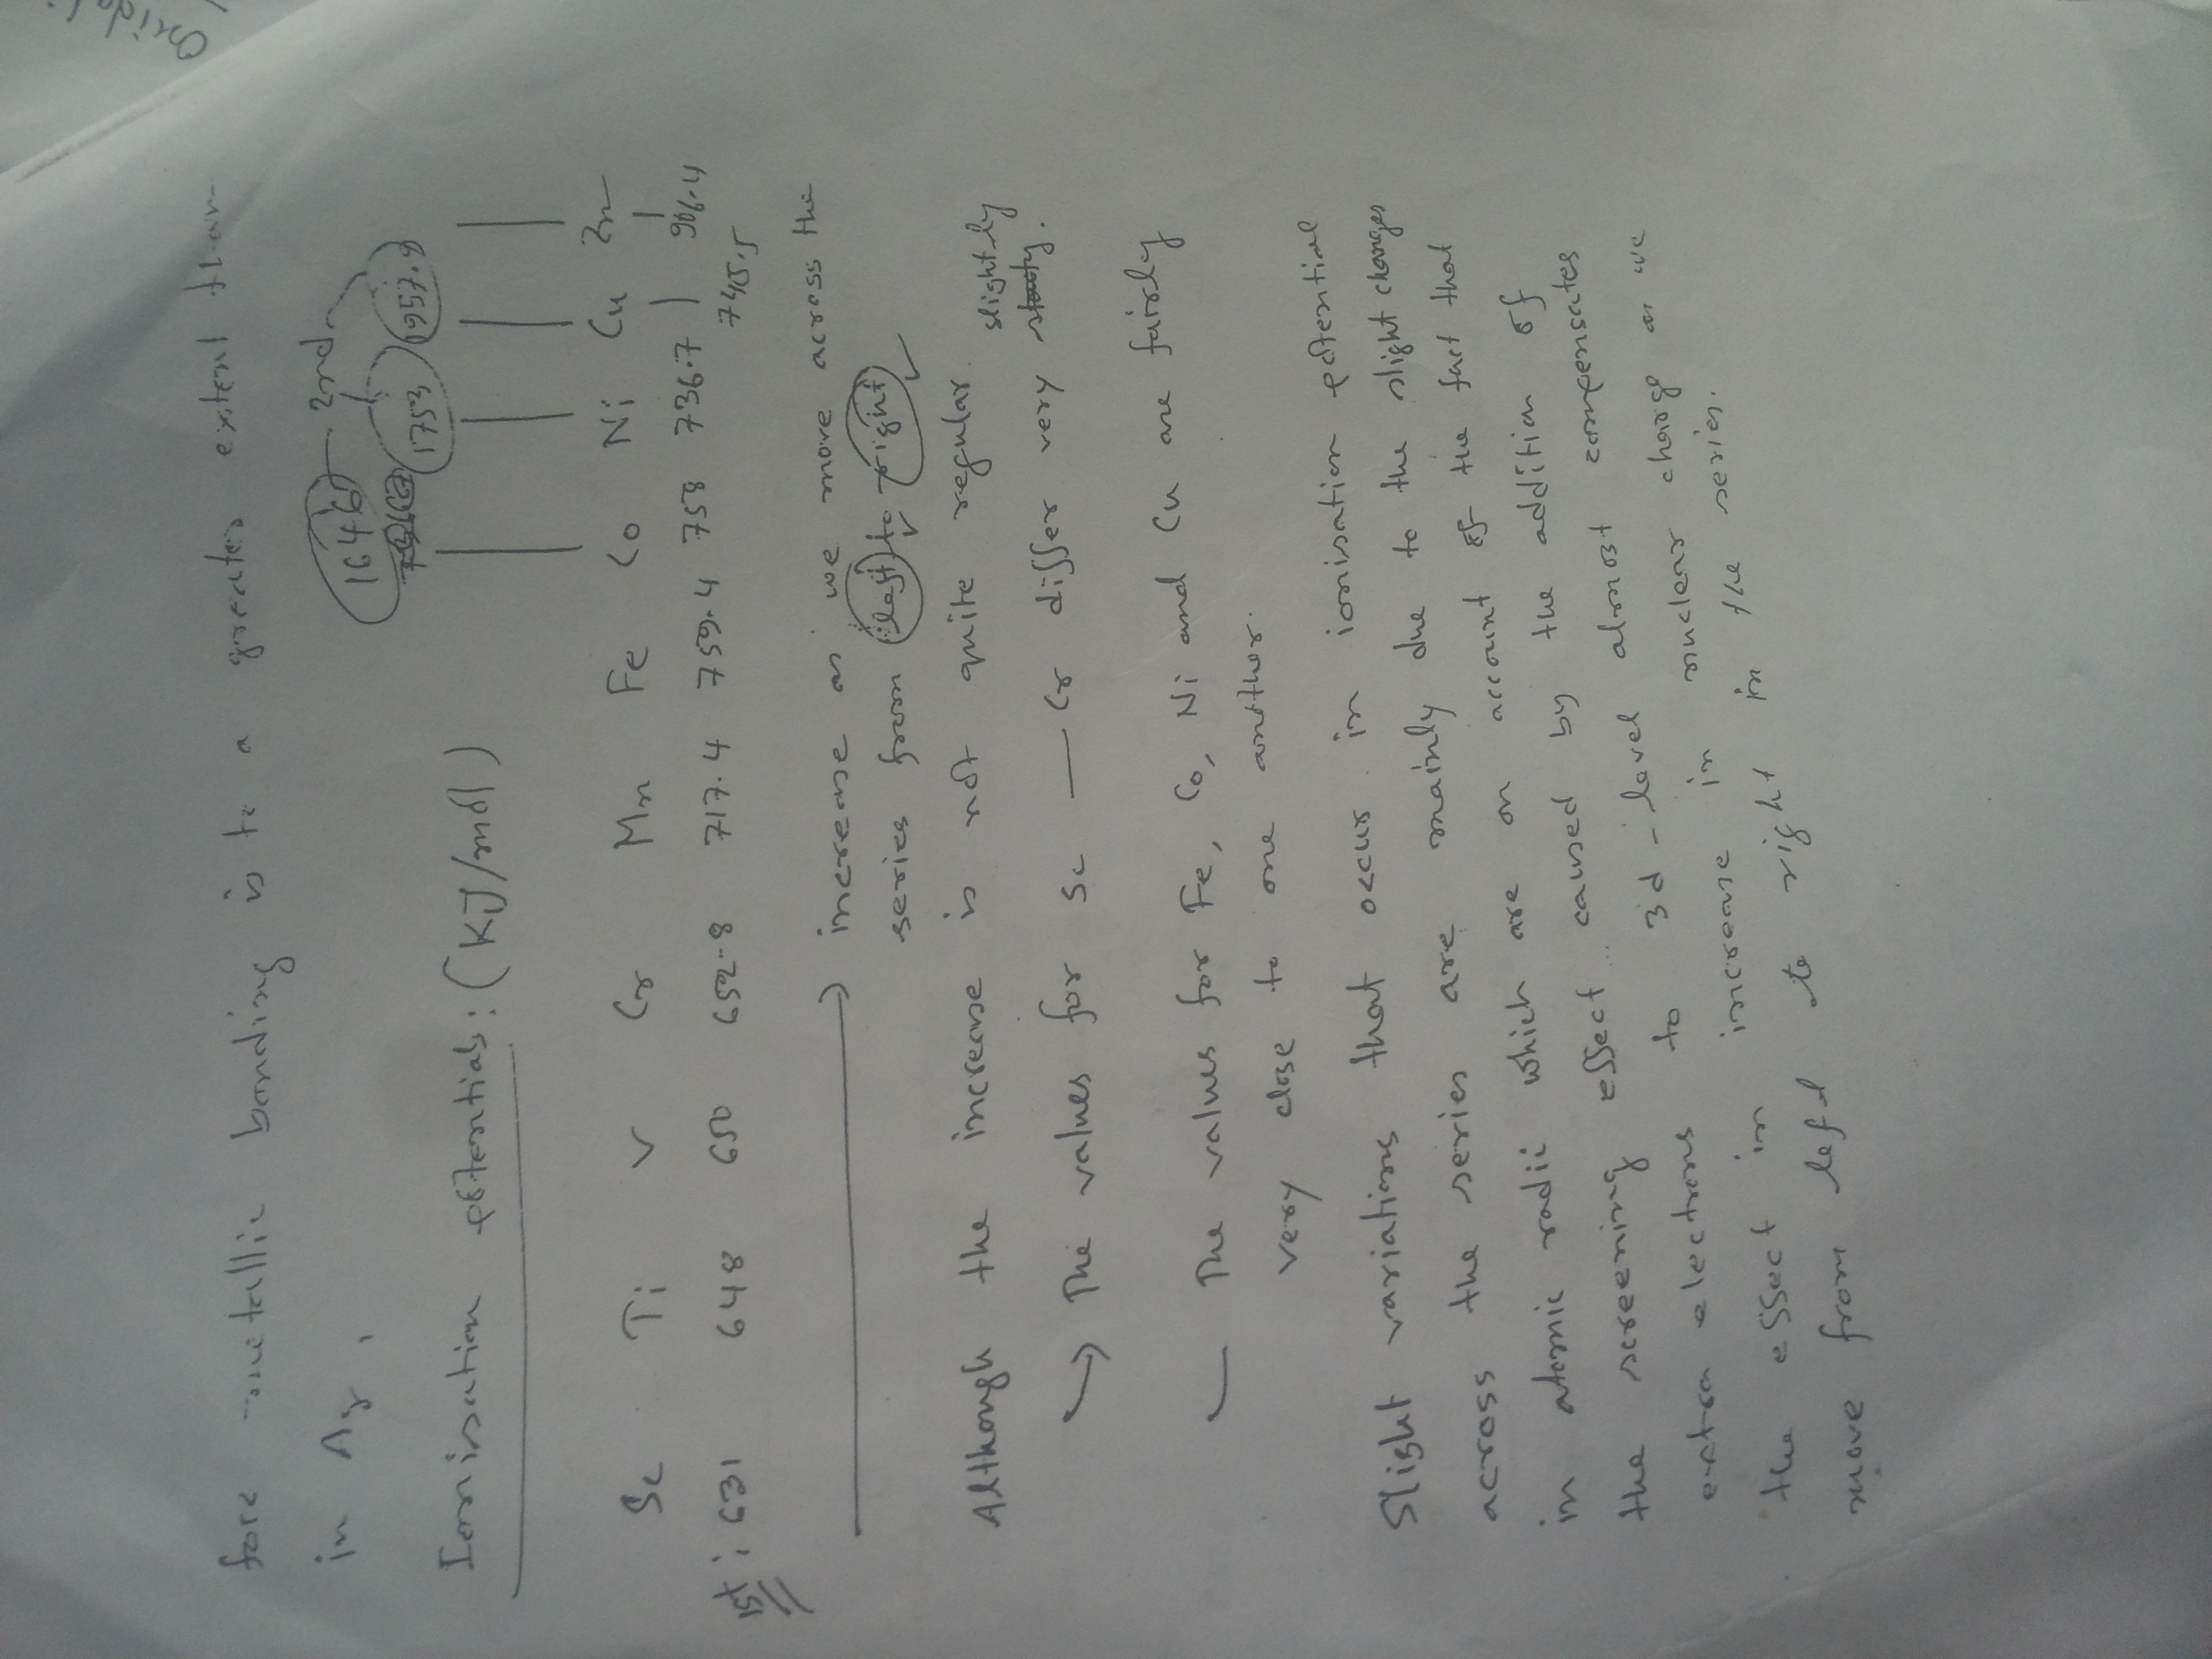 Oxida
fore metallic bonding is to a greater extent than
in Ag,
1646 2nd
1753 1957.9
Ionisation potentials: (KJ/mol)
Sc Ti V Cr Mn Fe Co Ni Cu Zn
1st: 631 648 650 652.8 717.4 759.4 758 736.7 745.5 906.4
increase as we move across the
series from left to right
Although the increase is not quite regular.
slightly
The values for Sc — Cr differ very
The values for Fe, Co, Ni and Cu are fairly
very close to one another.
Slight variations that occur in ionisation potential
across the series are mainly due to the slight changes
in atomic radii which are on account of the fact that
the screening effect caused by the addition of
extra electrons to 3d-level almost compensates
the effect in increase in nuclear charge as we
move from left to right in the series.